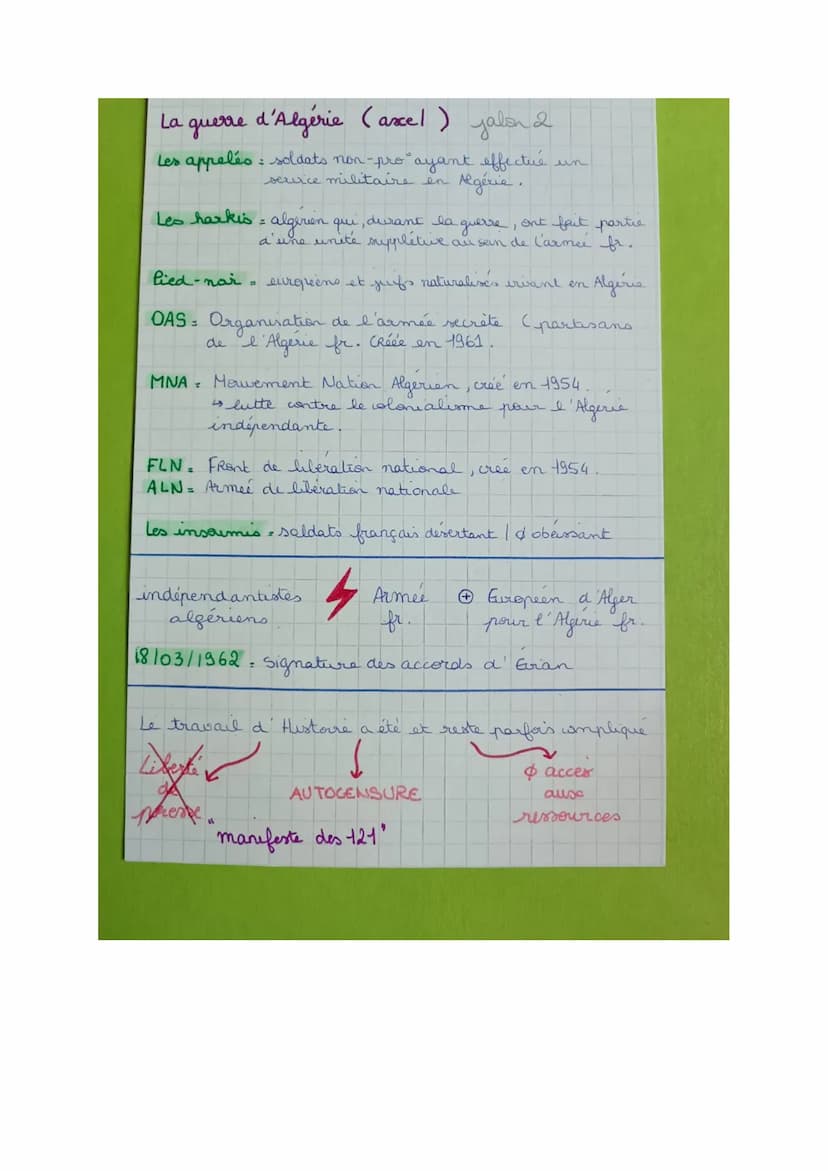 La guerre d'Algérie (axe 1) jalon 2
Les appelés : soldats non-pro° ayant effectué un
service militaire en Algérie.
Les harkis = algérien qui, durant la guerre, ont fait partie
d'une unité supplétive au sein de l'armée fr.
Pied-noir = européens et juifs naturalisés vivant en Algérie
OAS = Organisation de l'armée secrète (partisans
de l'Algérie fr. Créée en 1961.
MNA = Mouvement Nation Algérien, créé en 1954.
↳ lutte contre le colonialisme pour l'Algérie
indépendante.
FLN = Front de libération national, créé en 1954.
ALN = Armée de libération nationale
Les insoumis = soldats français désertant / ∅ obéissant
indépendantistes ⚡ Armée ⊕ Européen d'Alger
algériens fr. pour l'Algérie fr.
18/03/1962 = Signature des accords d'Evian
Le travail d'Histoire a été et reste parfois compliqué
Liberté
de
presse
AUTOCENSURE
∅ accès
aux
ressources
"manifeste des 121"